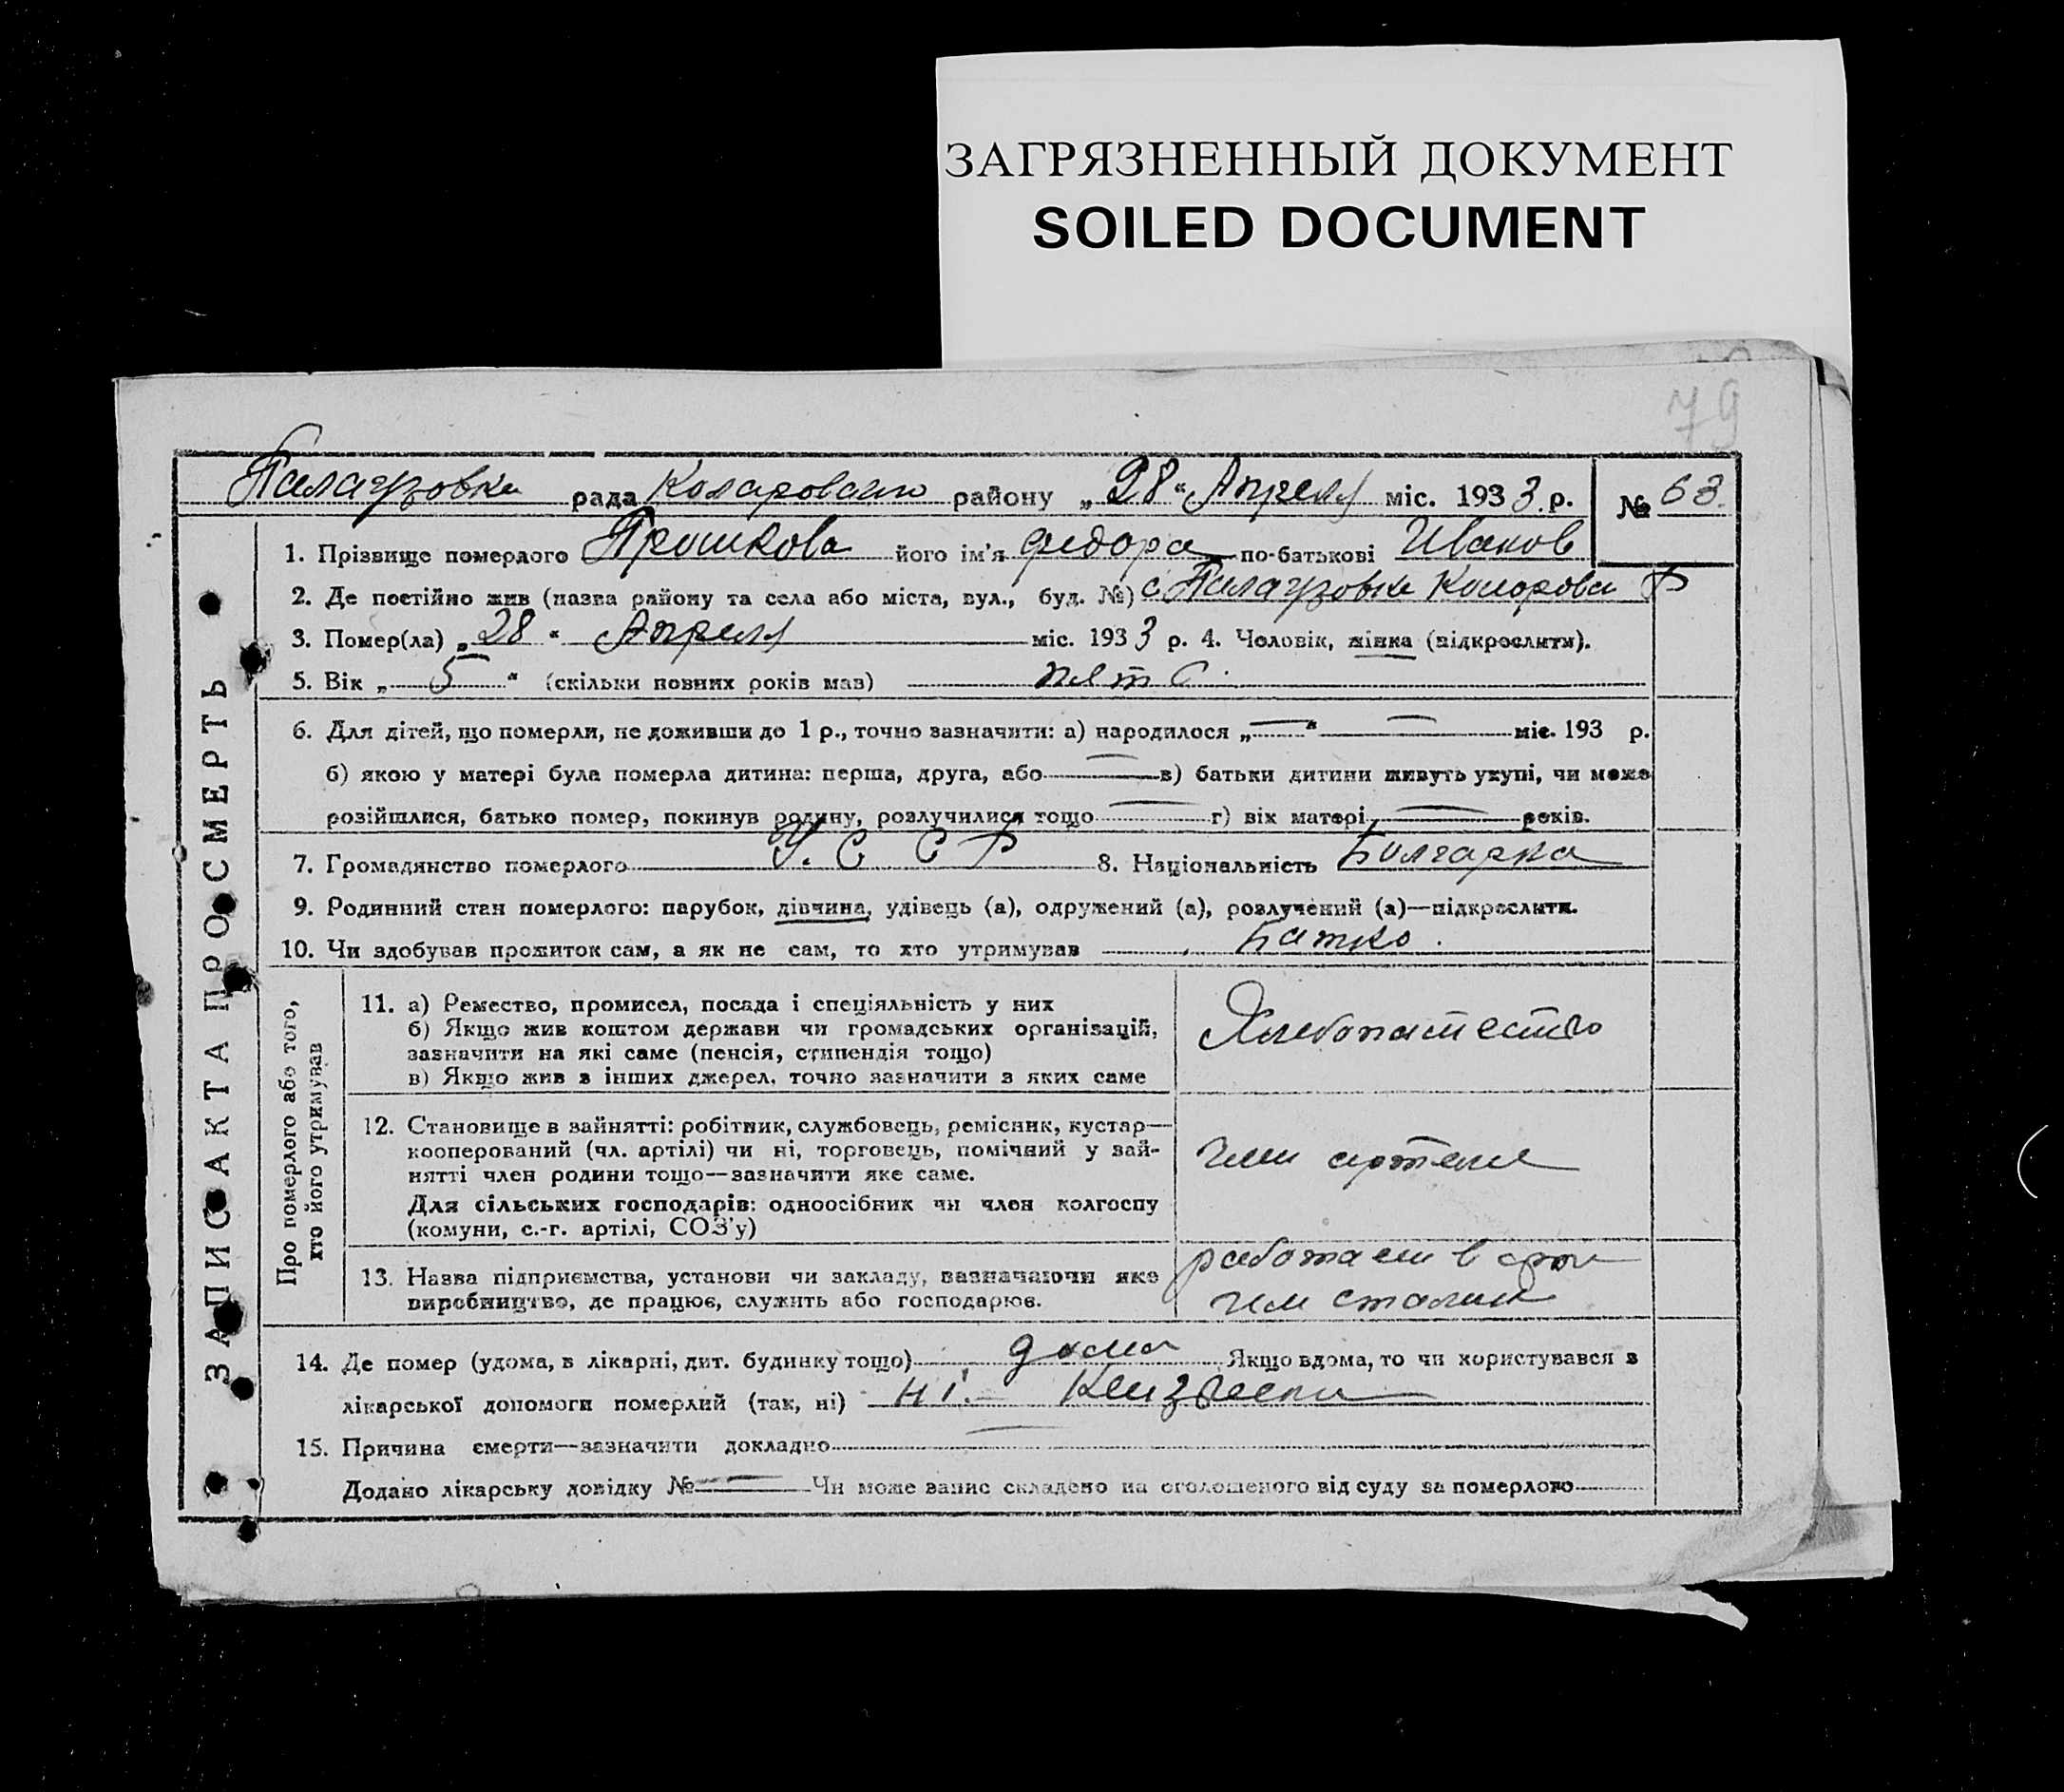 ЗАГРЯЗНЕННЫЙ ДОКУМЕНТ
SOILED DOCUMENT
79
Палаузовка рада Коларовского району „28“ Апреля міс. 1933 р. № 63
ЗАПИС АКТА ПРО СМЕРТЬ
1. Прізвище померлого Прошкова його ім'я федора по-батькові Иванов
2. Де постійно жив (назва району та села або міста, вул., буд. №) с. Палаузовка Коларовск Р
3. Помер(ла) „28“ Апреля міс. 1933 р. 4. Чоловік, жінка (підкреслити).
5. Вік „5“ (скільки повних років мав) пят
6. Для дітей, що померли, не доживши до 1 р., точно зазначити: а) народилося „—“ — міс. 193 р.
б) якою у матері була померла дитина: перша, друга, або — в) батьки дитини живуть укупі, чи може
розійшлися, батько помер, покинув родину, розлучилися тощо — г) вік матері — років.
7. Громадянство померлого У. С С Р 8. Національність Болгарка
9. Родинний стан померлого: парубок, дівчина, удівець (а), одружений (а), розлучений (а)—підкреслити.
10. Чи здобував прожиток сам, а як не сам, то хто утримував Батко.
Про померлого або того,
хто його утримував
11. а) Ремество, промисел, посада і спеціяльність у них
б) Якщо жив коштом держави чи громадських організацій,
зазначити на які саме (пенсія, стипендія тощо)
в) Якщо жив з інших джерел, точно зазначити з яких саме
Хлебопашество
12. Становище в зайнятті: робітник, службовець, ремісник, кустар—
кооперований (чл. артілі) чи ні, торговець, помічний у зай-
нятті член родини тощо—зазначити яке саме.
Для сільських господарів: одноосібник чи член колгоспу
(комуни, с.-г. артілі, СОЗ'у)
член артели
13. Назва підприємства, установи чи закладу, зазначаючи яке
виробництво, де працює, служить або господарює.
работает в
14. Де помер (удома, в лікарні, дит. будинку тощо) дома Якщо вдома, то чи користувався з
лікарської допомоги померлий (так, ні) ні.
15. Причина смерти—зазначити докладно —
Додано лікарську довідку № — Чи може запис складено на оголошеного від суду за померлого